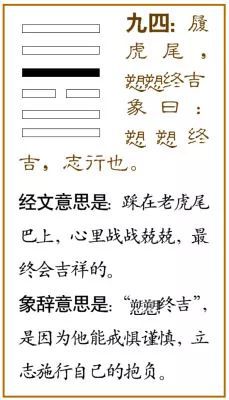 九四：履
虎尾，
愬愬终吉
象曰：
愬愬终
吉，志行也。
经文意思是：踩在老虎尾
巴上，心里战战兢兢，最
终会吉祥的。
象辞意思是：“愬愬终吉”，
是因为他能戒惧谨慎，立
志施行自己的抱负。